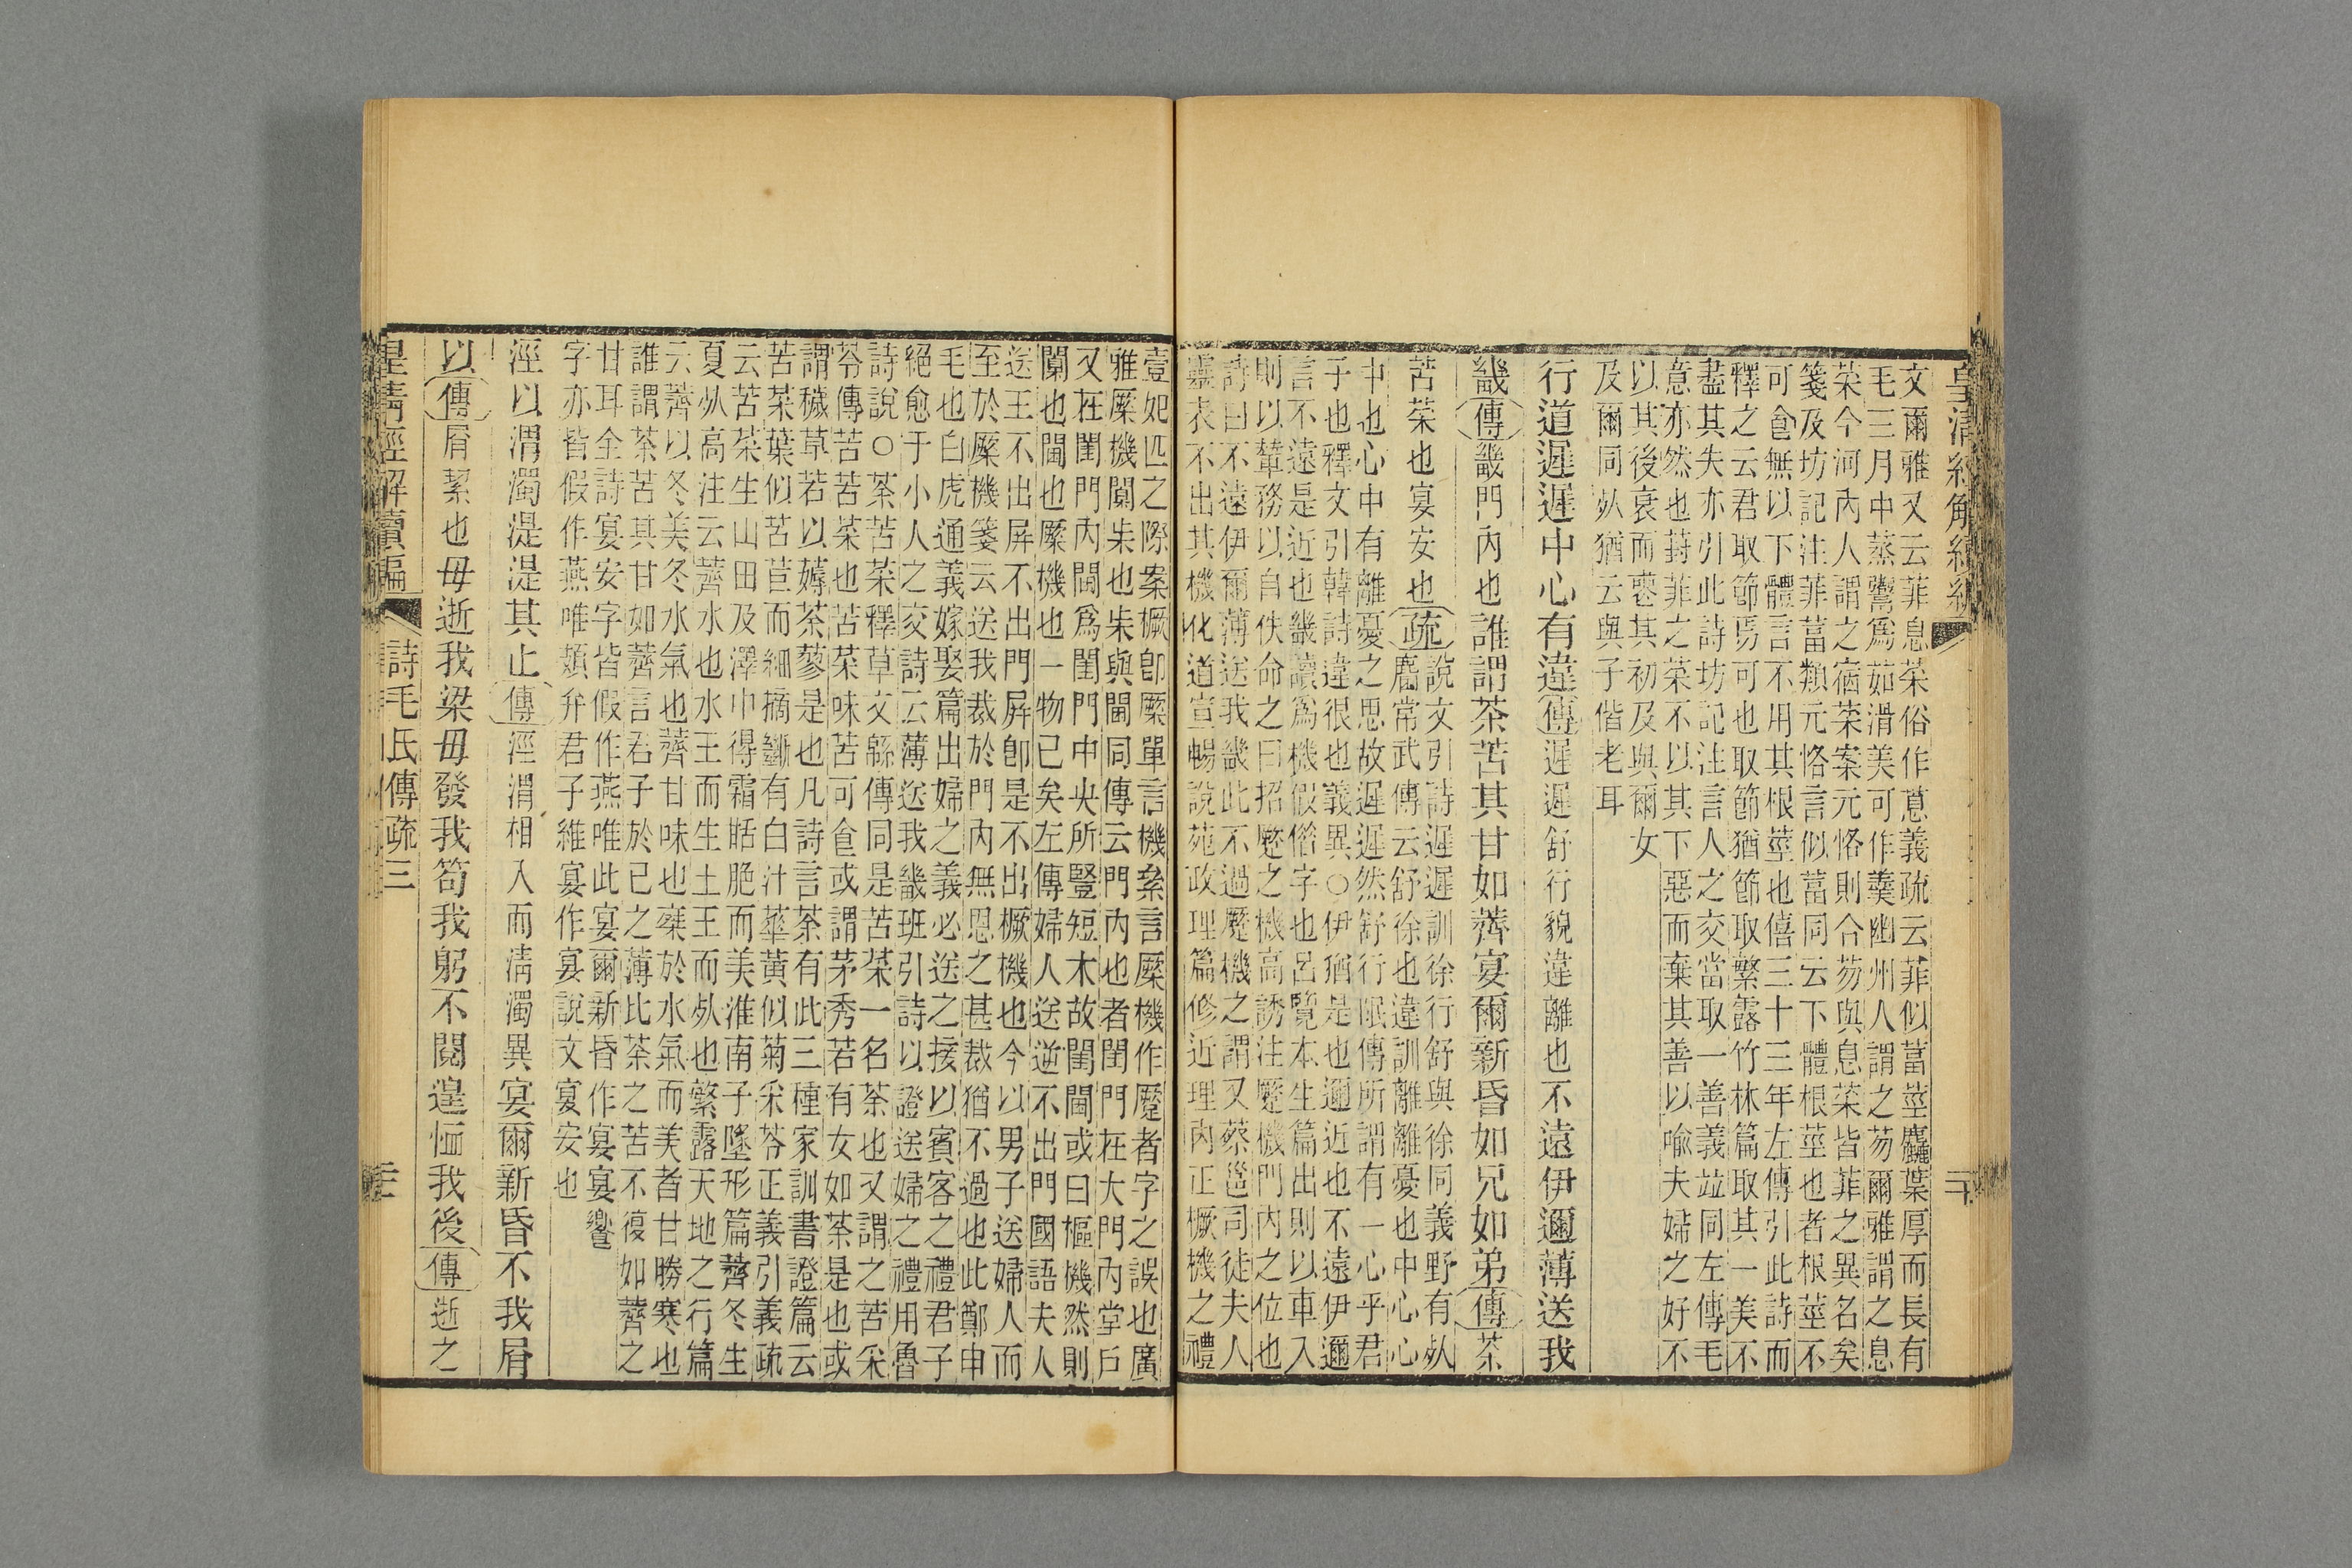 文爾雅又云菲息菜俗作蒠義疏云菲似葍莖麤葉厚而長有
毛三月中蒸鬻爲茹滑美可作羹幽州人謂之芴爾雅謂之息
菜今河內人謂之宿菜案元恪則合芴與息菜皆菲之異名矣
箋及坊記注菲葍類元恪言似葍同云下體根莖也者根莖不
可食無以下體言不用其根莖也僖三十三年左傳引此詩而
釋之云君取節焉可也取節猶節取繁露竹林篇取其一美不
盡其失亦引此詩坊記注言人之交當取一善義竝同左傳毛
意亦然也葑菲之菜不以其下惡而棄其善以喻夫婦之好不
以其後衰而棄其初及與爾女
及爾同从猶云與子偕老耳
行道遲遲中心有違傳遲遲舒行貌違離也不遠伊邇薄送我
畿傳畿門內也誰謂荼苦其甘如薺宴爾新昏如兄如弟傳荼
苦菜也宴安也疏
說文引詩遲遲訓徐行舒與徐同義野有㱙
麕常武傳云舒徐也違訓離離憂也中心心
中也心中有離憂之思故遲遲然舒行㞋傳所謂有一心乎君
子也釋文引韓詩違很也義異○伊猶是也邇近也不遠伊邇
言不遠是近也畿讀爲機假僭字也呂覽本生篇出則以車入
則以輦務以自佚命之曰招蹷之機高誘注蹷機門內之位也
詩曰不遠伊爾薄送我畿此不過蹷機之謂又蔡邕司徒夫人
靈表不出其機化道宣暢說苑政理篇修近理內正橛機之禮
壹妃匹之際案橛卽橜單言機絫言橜機作蹷者字之誤也廣
雅橜機闑朱也朱與閫同傳云門內也者閨門在大門內堂戶
又在閨門內閫爲閨門中央所豎短木故閨閫或曰樞機然則
闑也閫也橜機也一物已矣左傳婦人送逆不出門國語夫人
送王不出屛不出門屛卽是不出橛機也今以男子送婦人而
至於橜機箋云送我裁於門內無恩之甚裁猶不過也此鄭申
毛也白虎通義嫁娶篇出婦之義必送之接以賓客之禮君子
絕愈于小人之交詩云薄送我畿班引詩以證送婦之禮用魯
詩說○荼苦菜釋草文緜傳同是苦菜一名荼也又謂之苦采
苓傳苦苦菜也苦菜味苦可食或謂茅秀若有女如荼是也或
謂穢草若以薅荼蓼是也凡詩言荼有此三種家訓書證篇云
苦菜葉似苦苣而細摘斷有白汁華黃似菊采苓正義引義疏
云苦菜生山田及澤中得霜甛脃而美淮南子墬形篇薺冬生
夏㱙高注云薺水也水王而生土王而㱙也繁露天地之行篇
云薺以冬美冬水氣也薺甘味也乘於水氣而美者甘勝寒也
誰謂荼苦其甘如薺言君子於己之薄比荼之苦不復如薺之
甘耳全詩宴安字皆假作燕唯此宴爾新昏作宴宴
字亦皆假作燕唯頍弁君子維宴作宴說文宴安也
涇以渭濁湜湜其止傳涇渭相入而淸濁異宴爾新昏不我屑
以傳屑絜也毋逝我梁毋發我笱我躬不閱遑恤我後傳逝之
皇淸經解續編
詩毛氏傳疏三